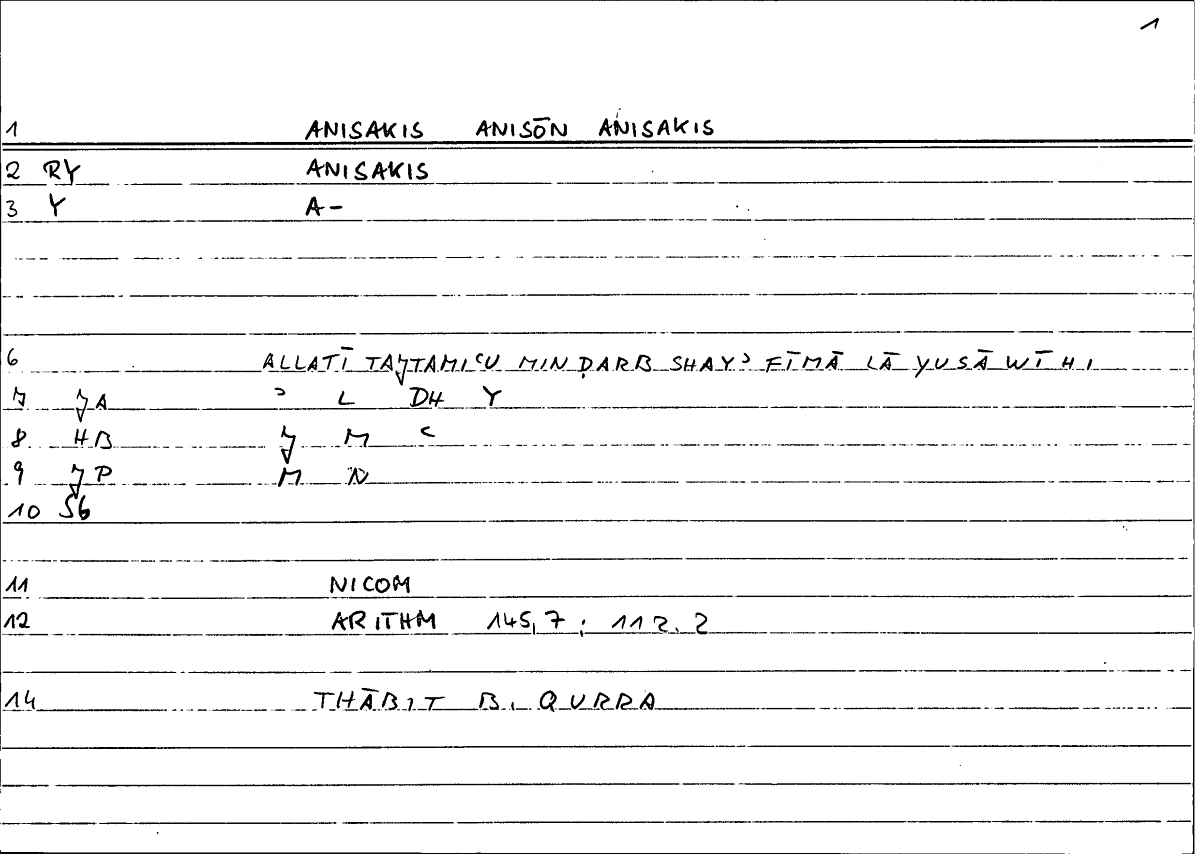 1
1 ANISAKIS ANISŌN ANISAKIS
2 RY ANISAKIS
3 Y A-
6 ALLATĪ TAǦTAMIʿU MIN ḌARB SHAYʾ FĪMĀ LĀ YUSĀWĪHI
7 ǦA ʾ L DH Y
8 HB Ǧ M ʿ
9 ǦP M N
10 SG
11 NICOM
12 ARITHM 145,7; 112.2
14 THĀBIT B. QURRA